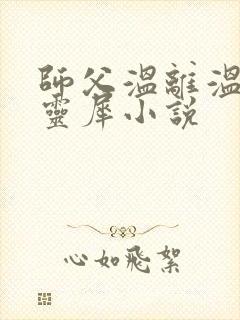 師父溫離溫
靈犀小說
心如飛絮